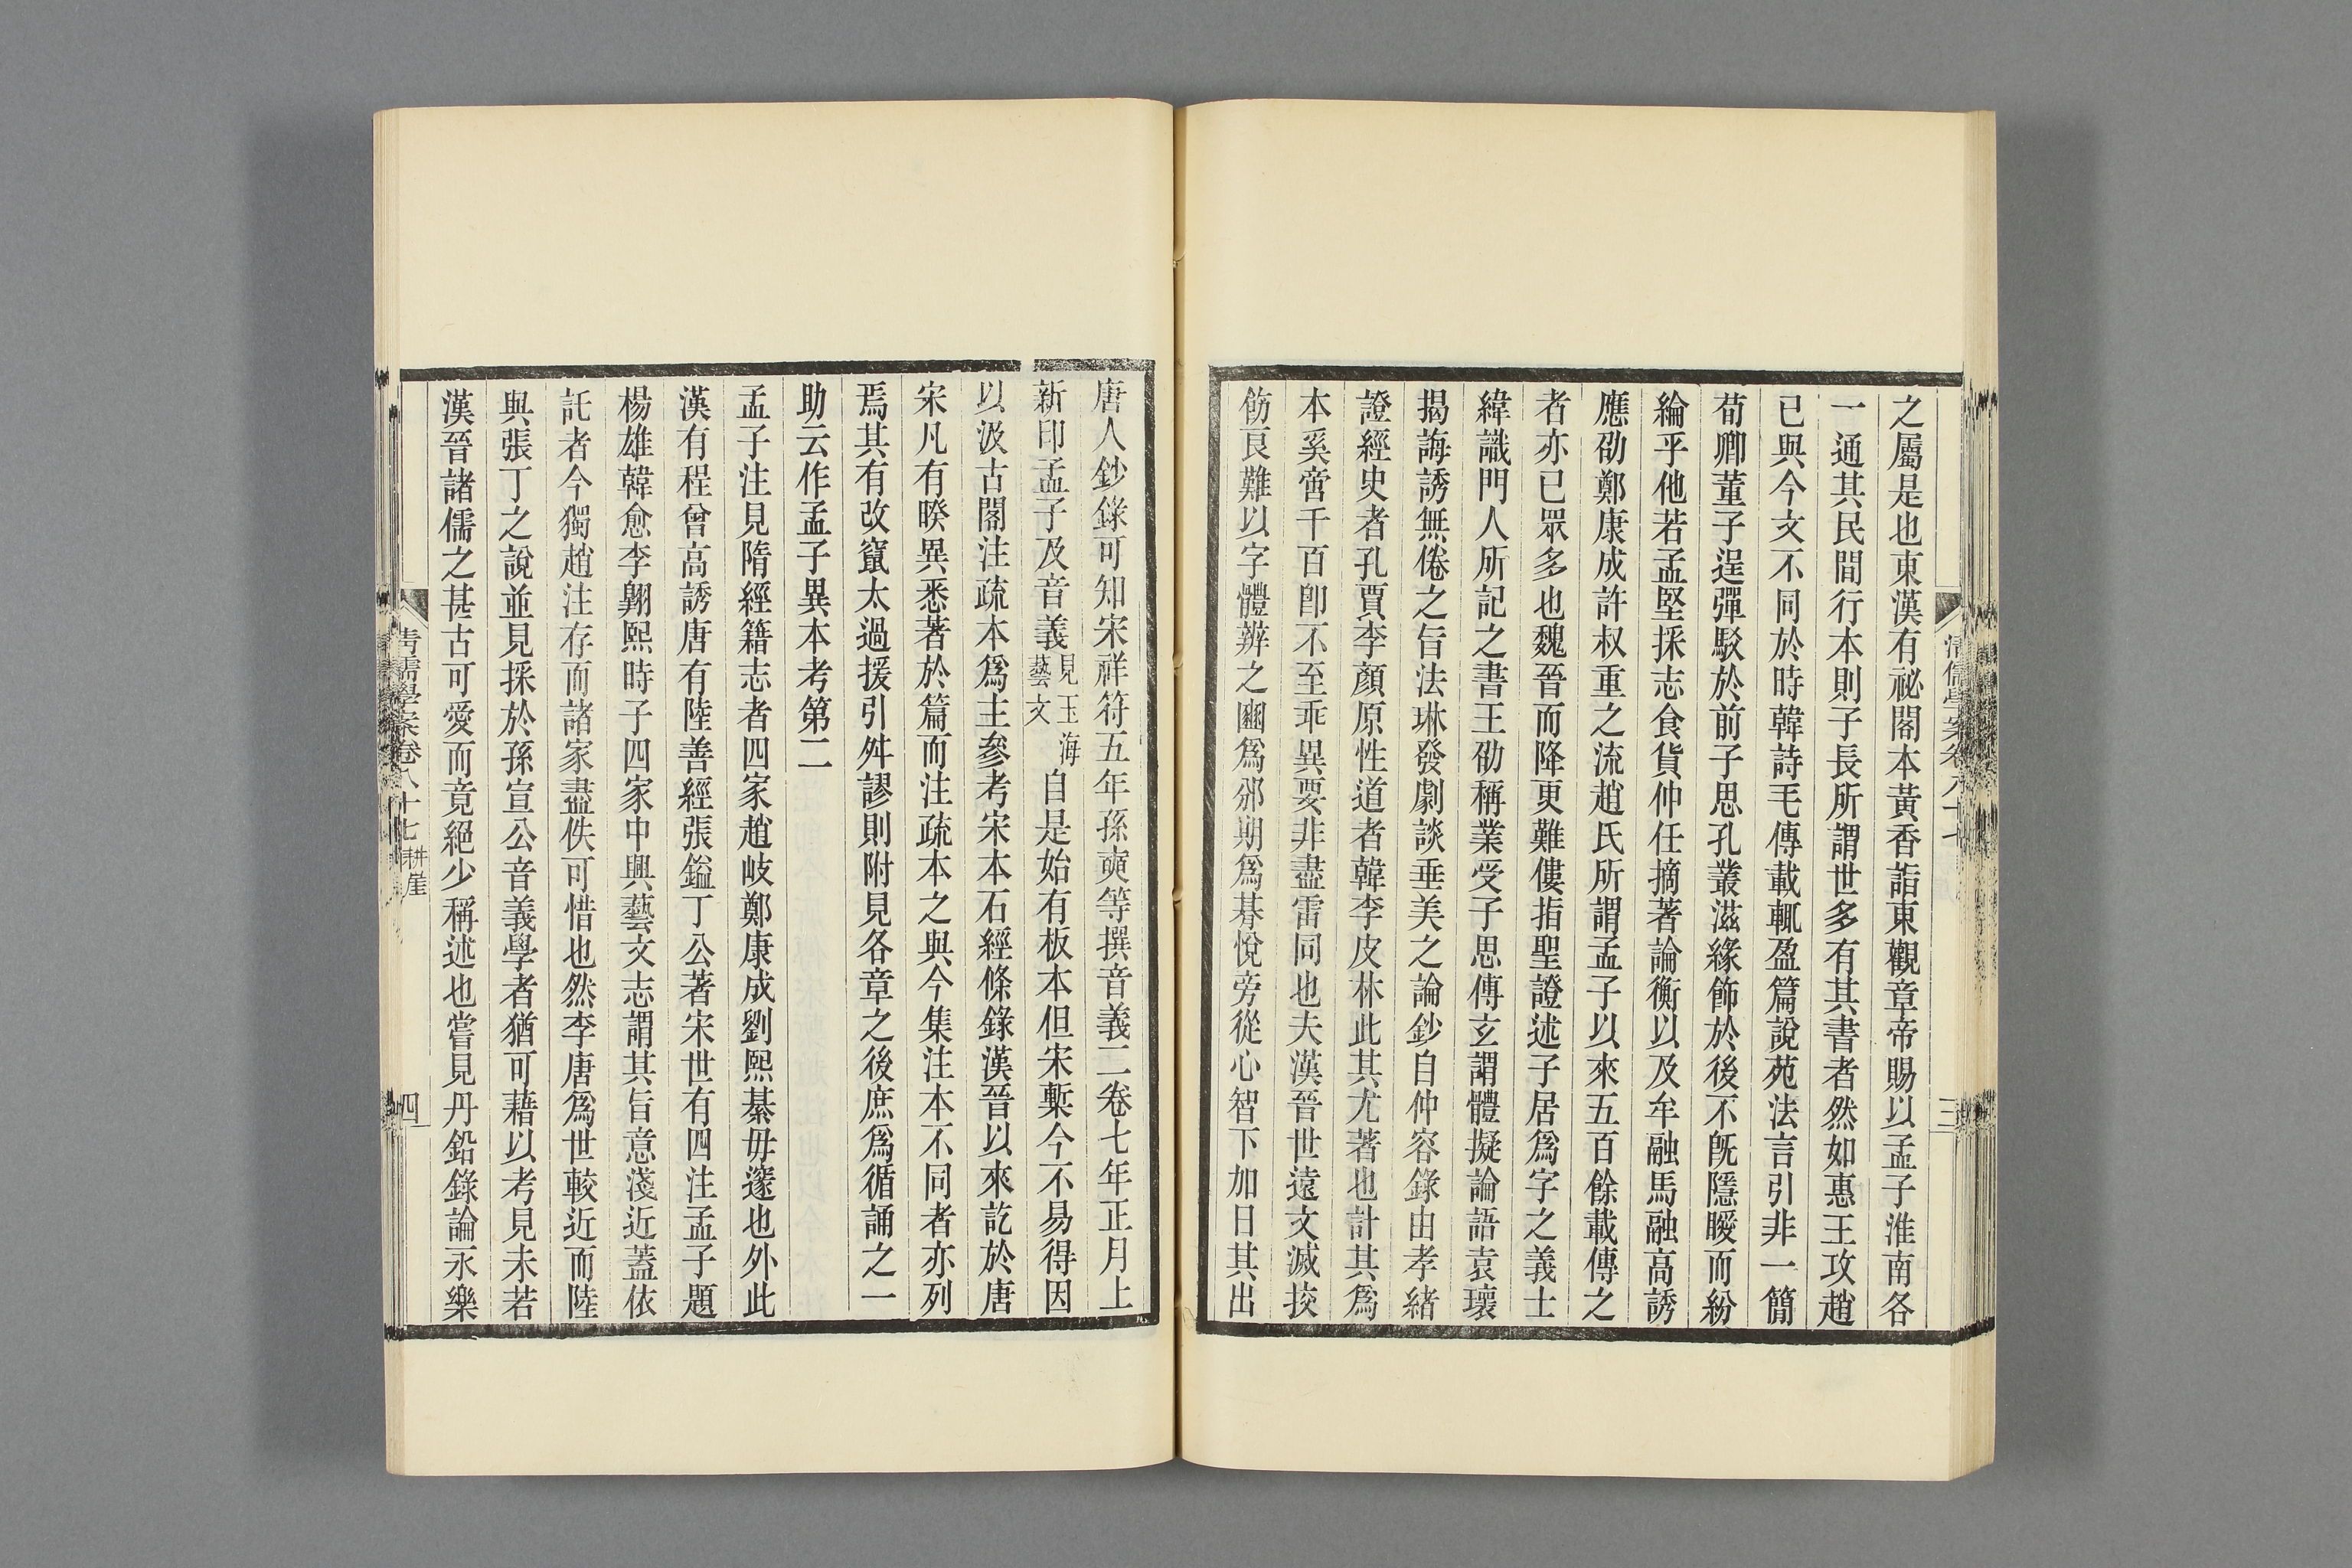 之屬是也東漢有祕閣本黃香詣東觀章帝賜以孟子淮南各
一通其民間行本則子長所謂世多有其書者然如惠王攻趙
已與今文不同於時韓詩毛傳載輒盈篇說苑法言引非一簡
荀卿董子逞彈駁於前子思孔叢滋緣飾於後不旣隱曖而紛
綸乎他若孟堅採志食貨仲任摘著論衡以及牟融馬融高誘
應劭鄭康成許叔重之流趙氏所謂孟子以來五百餘載傳之
者亦已眾多也魏晉而降更難僂指聖證述子居爲字之義士
緯識門人所記之書王劭稱業受子思傳玄謂體擬論語袁瓌
揭誨誘無倦之旨法琳發劇談垂美之論鈔自仲容錄由孝緒
證經史者孔賈李顏原性道者韓李皮林此其尤著也計其爲
本奚啻千百卽不至乖異要非盡雷同也夫漢晉世遠文滅挍
飭艮難以字體辨之豳爲邠期爲朞悅旁從心智下加日其出
清儒學案卷八十七
三
唐人鈔錄可知宋祥符五年孫奭等撰音義二卷七年正月上
新印孟子及音義見玉海藝文自是始有板本但宋槧今不易得因
以汲古閣注疏本爲主參考宋本石經條錄漢晉以來訖於唐
宋凡有暌異悉著於篇而注疏本之與今集注本不同者亦列
焉其有改竄太過援引舛謬則附見各章之後庶爲循誦之一
助云作孟子異本考第二
孟子注見隋經籍志者四家趙岐鄭康成劉熙綦毋邃也外此
漢有程曾高誘唐有陸善經張鎰丁公著宋世有四注孟子題
楊雄韓愈李翺熙時子四家中興藝文志謂其旨意淺近蓋依
託者今獨趙注存而諸家盡佚可惜也然李唐爲世較近而陸
與張丁之說並見採於孫宣公音義學者猶可藉以考見未若
漢晉諸儒之甚古可愛而竟絕少稱述也嘗見丹鉛錄論永樂
清儒學案卷八十七 耕崖
四